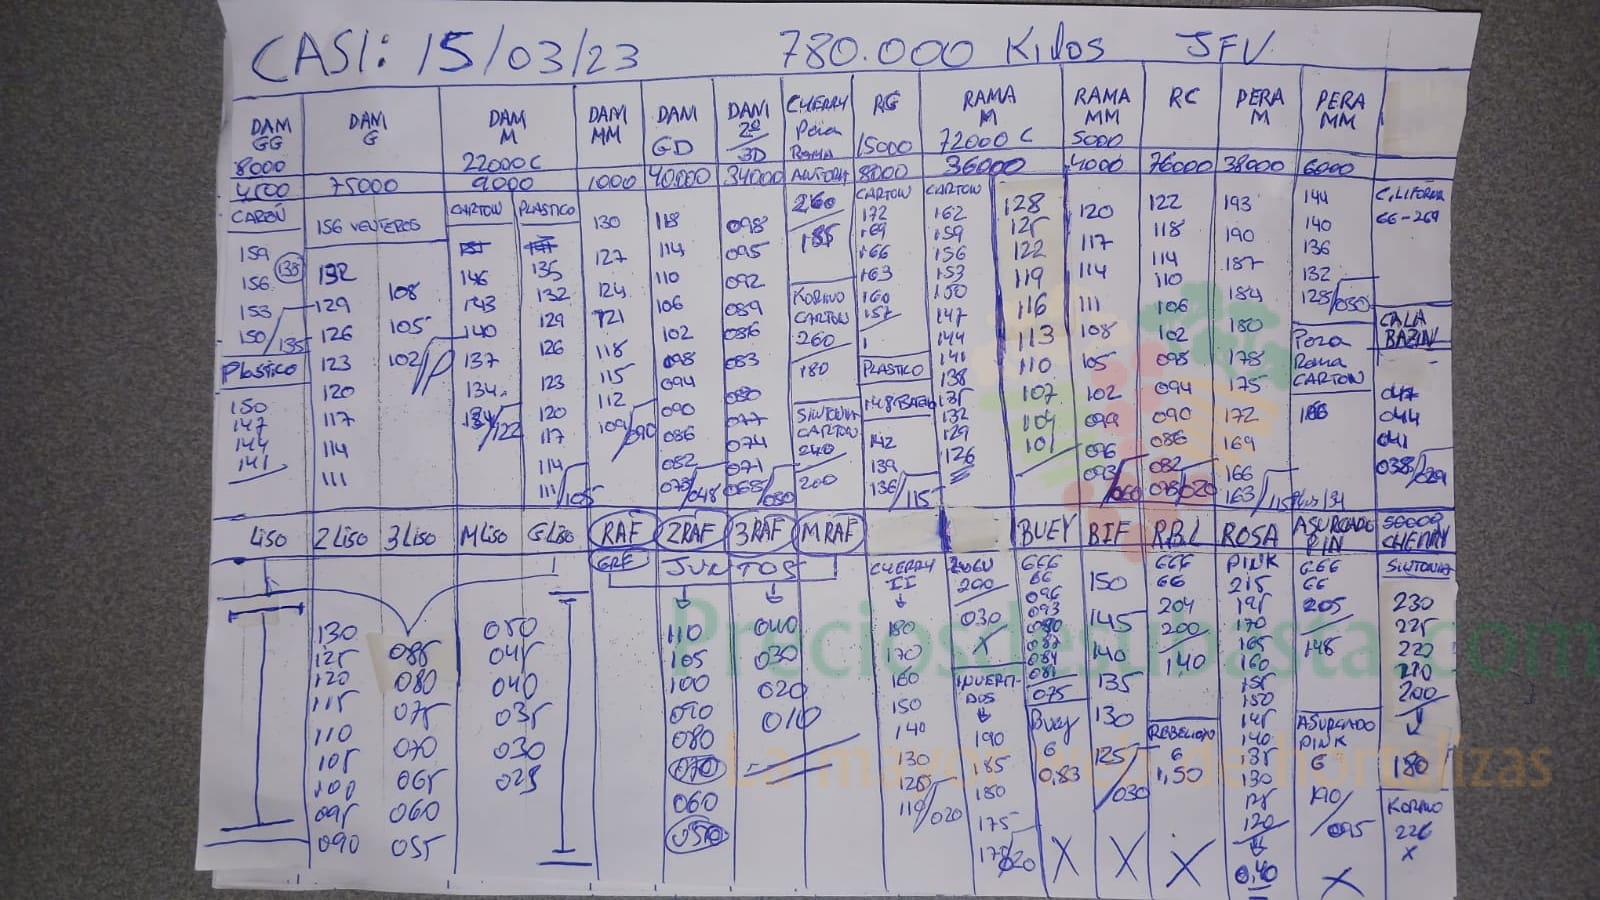 CASI: 15/03/23 780.000 Kilos JFV
DAM GG DAM G DAM M DAM MM DANI GD DANI 2º/3D CHERRY Pera Rama RG RAMA M RAMA MM RC PERA M PERA MM
8000 22000C 15000 72000 C 5000
75000 9000 1000 40.000 34000 8000 36000 4000 76000 38000 6000
CARTON PLASTICO CARTON CARTON
156 VENTEROS
159
156 138
153
150/135
Plastico
150
147
144
141
132
129
126
123
120
117
114
111
108
105
102/P
146
143
140
137
134
/122
135
132
129
126
123
120
117
114
111/105
130
127
124
121
118
115
112
109/090
118
114
110
106
102
098
094
090
086
082
078/048
098
095
092
089
086
083
080
077
074
071
068/050
260
185
KORINO
CARTON
260
180
SINTONIA
CARTON
240
200
172
169
166
163
160
157
PLASTICO
142
139
136/115
162
159
156
153
150
147
144
141
138
135
132
129
126
128
125
122
119
116
113
110
107
104
101
120
117
114
111
108
105
102
099
096
093/060
122
118
114
110
106
102
098
094
090
086
082
078/020
193
190
187
184
180
178
175
172
169
166
163/115
144
140
136
132
128/050
Pera
Rama
CARTON
66-269
CALA
BAZIN
047
044
041
038/029
LISO 2 LISO 3 LISO M LISO G LISO RAF 2RAF 3RAF M RAF BUEY BIF R.B.L ROSA ASURCADO PIN CHERRY
JUNTOS
130
125
120
115
110
105
100
095
090
085
080
075
070
065
060
055
050
045
040
035
030
025
110
105
100
090
080
070
060
050
040
030
020
010
CHERRY
II
180
170
160
150
140
130
120
110/020
200
030
X
INVERTI-
DOS
190
185
180
175
170/020
666
66
096
093
090
087
084
081
075
Buey
6
0,83
X
150
145
140
135
130
125/030
X
666
66
204
200
1,40
REBELION
6
1,50
X
PINK
215
195
170
165
160
155
150
145
140
135
130
125
120
0,40
666
66
205
148
ASURCADO
PINK
6
190/095
X
SINTONIA
230
225
220
210
200
180
KORINO
226
X
Preciosdesubasta.com